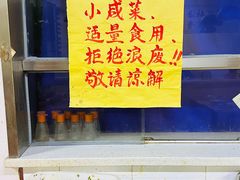 小咸菜、
适量食用、
拒绝浪废!!
敬请谅解